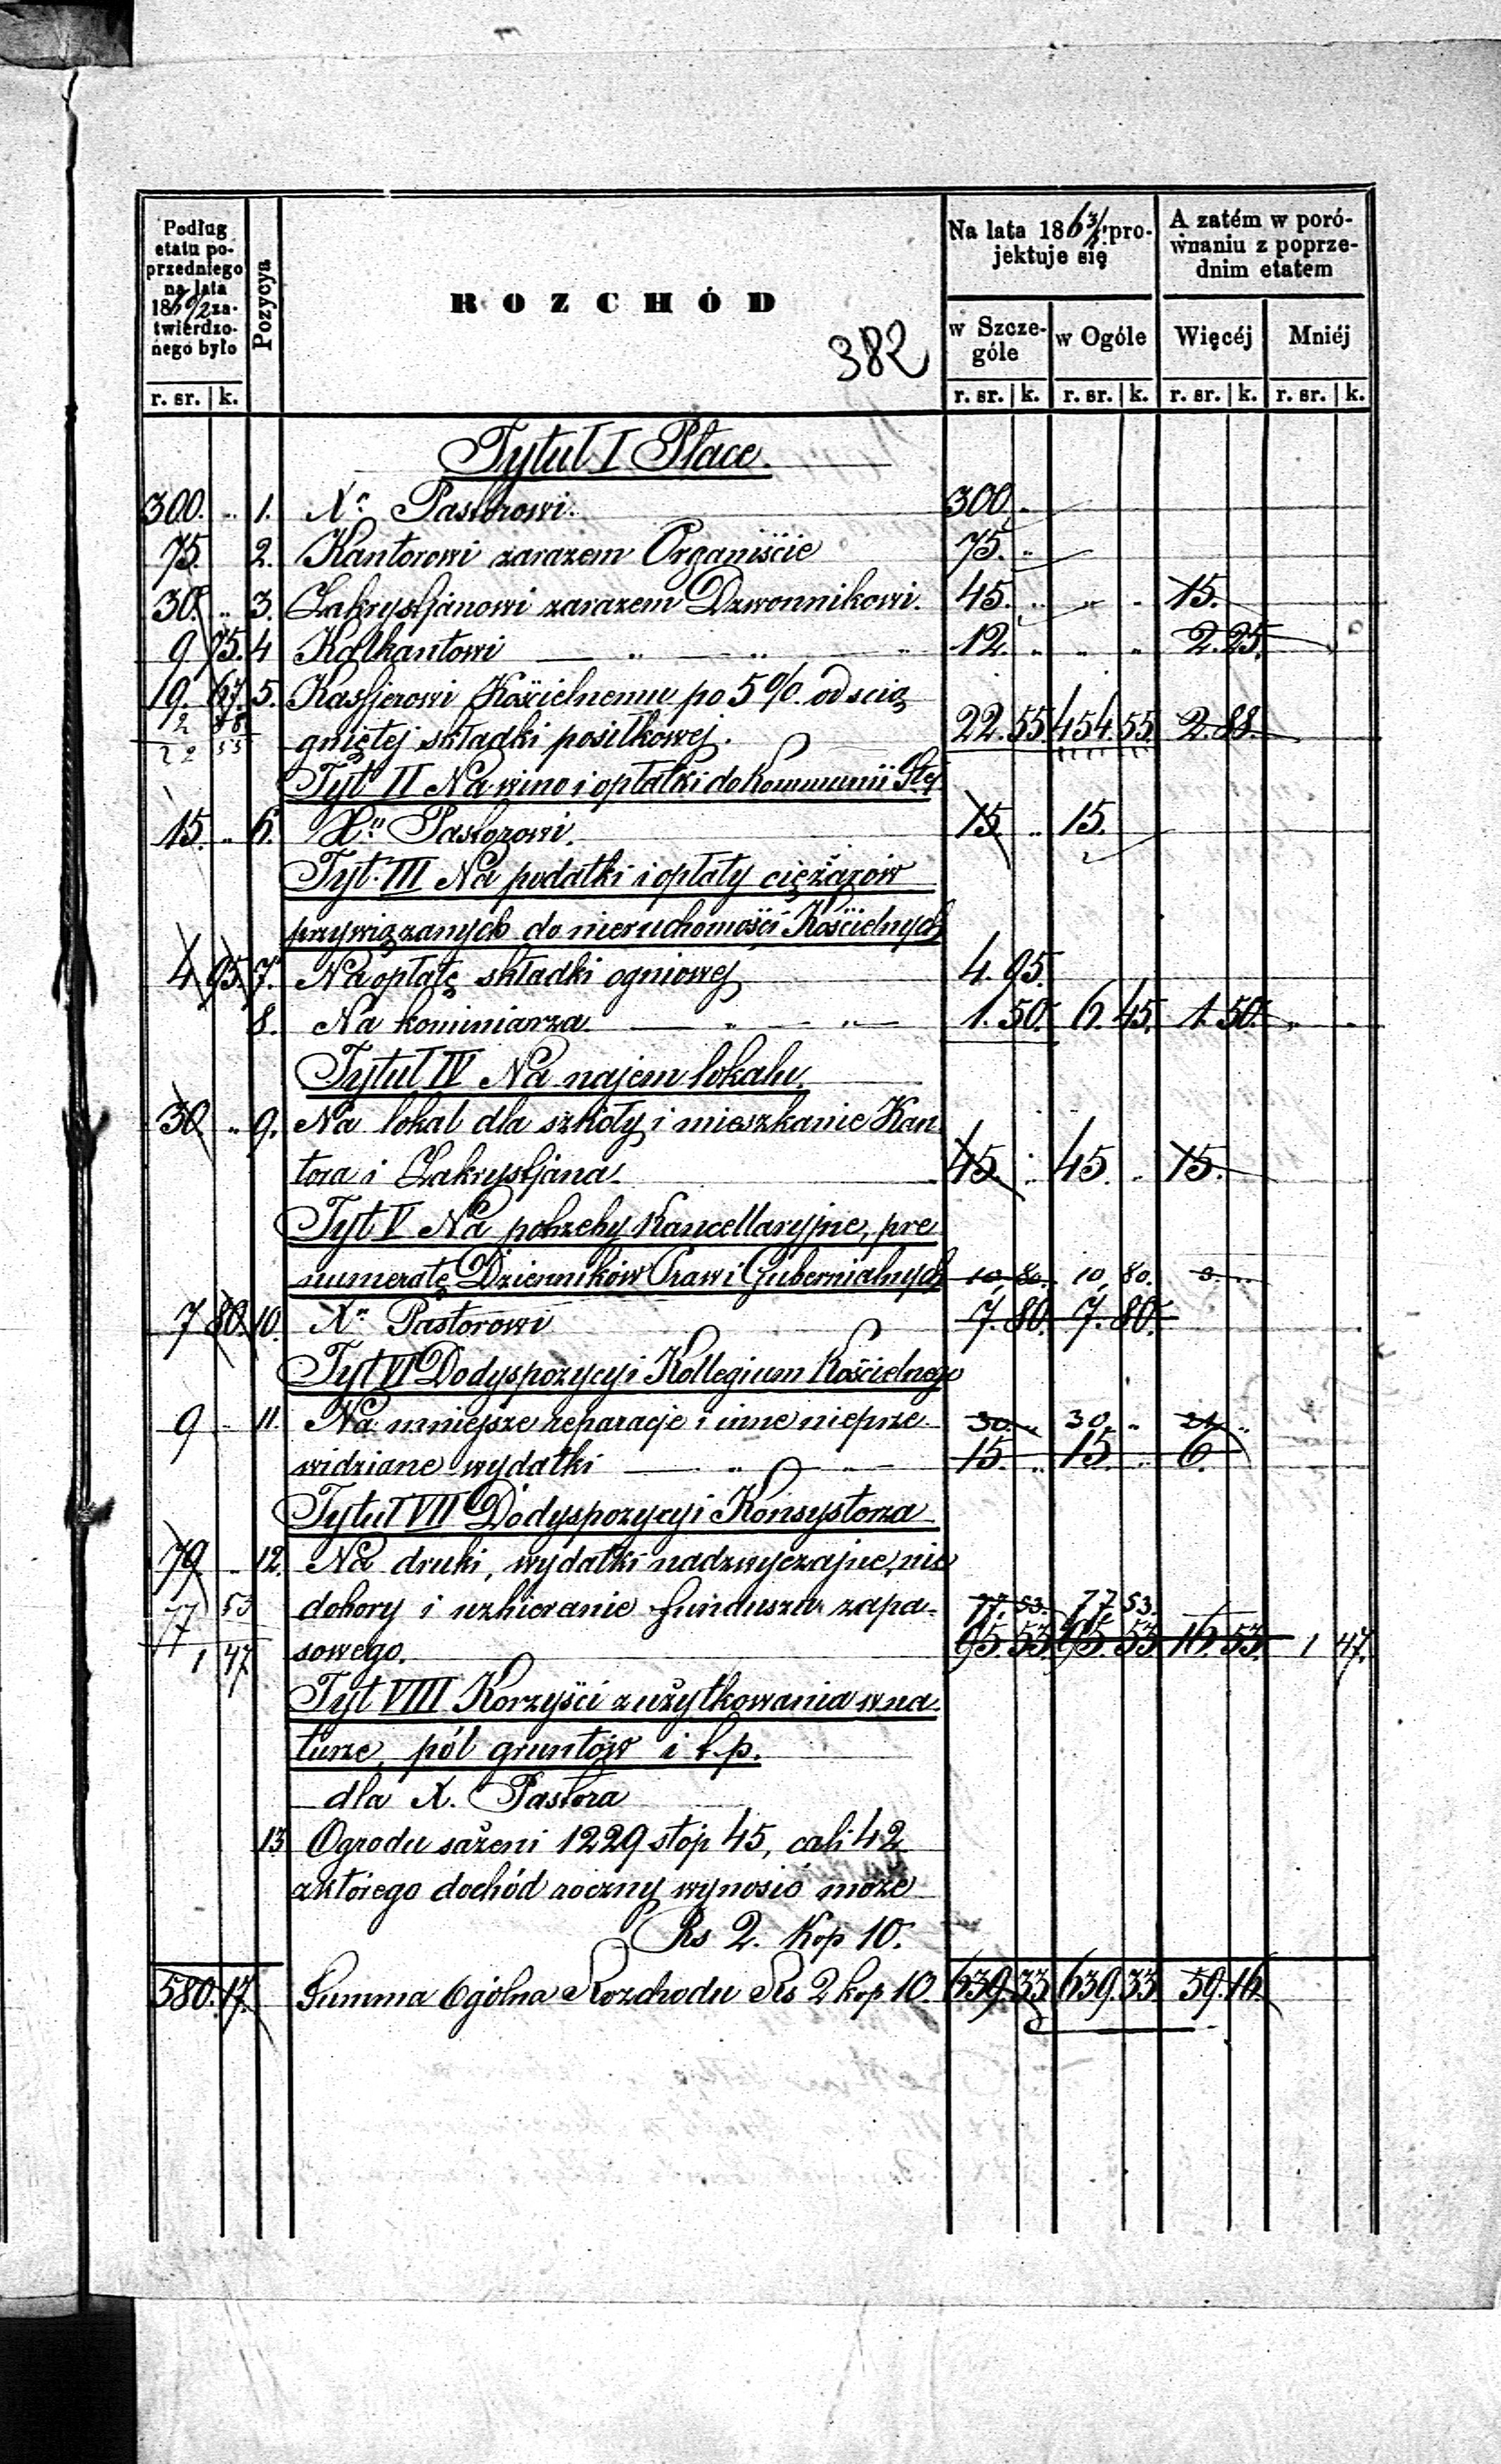 Podług etatu poprzedniego na lata 1860/2 zatwierdzonego było
Pozycya
ROZCHÓD
382
Na lata 1863/ projektuje się
A zatém w porównaniu z poprzednim etatem
w Szczególe
w Ogóle
Więcéj
Mniéj
r. sr. k. r. sr. k. r. sr. k. r. sr. k. r. sr. k.
Tytuł I Płace.
300. „ 1. Xu Pastorowi. 300 „
75. 2. Kantorowi zarazem Organiście 75. „
30. „ 3. Zakrystjanowi zarazem Dzwonnikowi. 45. „ „ „ 15.
9 75. 4 Kalkantowi „ „ „ 12. „ „ „ 2.25.
19. 67. 5. Kassjerowi Kościelnemu po 5%. od ścią
2 88
22 55 gniętej składki posiłkowej. 22.55 454.55. 2.88.
Tyt. II Na wino i opłatki do Kommunii Stej
15. „ 6. Xu Pastorowi. 15 „ 15.
Tyt. III Na podatki i opłaty ciężarów
przywiązanych do nieruchomości Kościelnych
4 95. 7. Na opłatę składki ogniowej 4.95.
8. Na kominiarza „ „ 1.50. 6.45. 1.50. „ „
Tytuł IV Na najem lokalu.
30. „ 9. Na lokal dla szkoły i mieszkanie Kan
tora i Zakrystjana. 45. „ 45. „ 15.
Tyt V Na potrzeby Kancellaryjne, pre
numeratę Dzienników Praw i Gubernialnych 10 80. 10 80. 3. „
7 80. 10. Xu Pastorowi 7.80. 7.80.
Tyt VI Do dyspozycyi Kollegium Kościelnego
9 „ 11. Na mniejsze reparacje i inne nieprze 30. „ 30. „ 21 „
widziane wydatki „ „ 15. „ 15. „ 6.
Tytuł VII Do dyspozycyi Konsystorza
79. „ 12. Na druki, wydatki nadzwyczajne, nie
77 53 dobory i uzbieranie funduszu zapa- 77.53. 77 53.
1 47 sowego. 95.53. 95.53 16.53. 1 47.
Tyt VIII Korzyści z użytkowania w na
turze, pól gruntów i t.p.
dla X. Pastora
13 Ogrodu sażeni 1229 stóp 45, cali 42
z którego dochód roczny wynosić może
Rs 2. Kop 10.
580.17. Summa Ogólna Rozchodu Rs 2 kop 10. 639.33 639.33. 59.16.